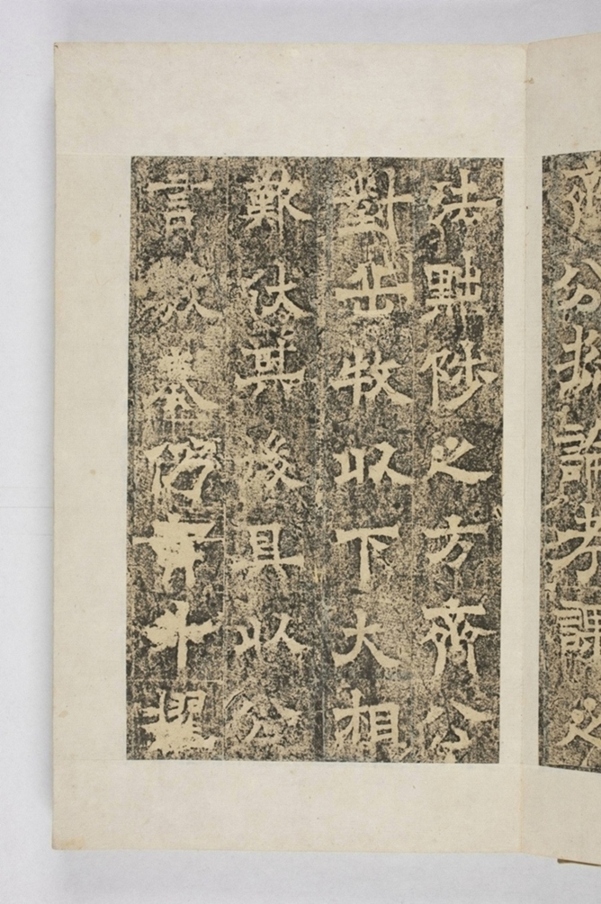 齊公論考課之
法黜陟之方齊公
對岳牧以下大相
歎伏其後具以公
言敷奏仍升擢